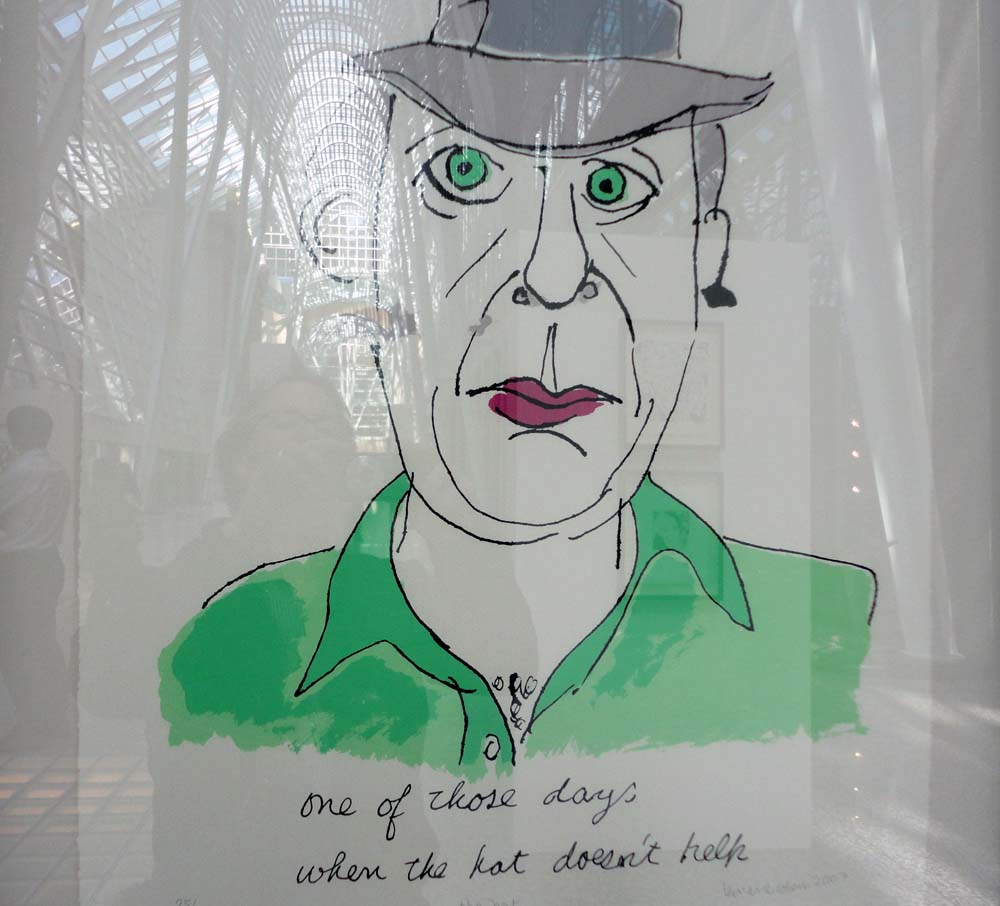 one of those days
when the hat doesn't help